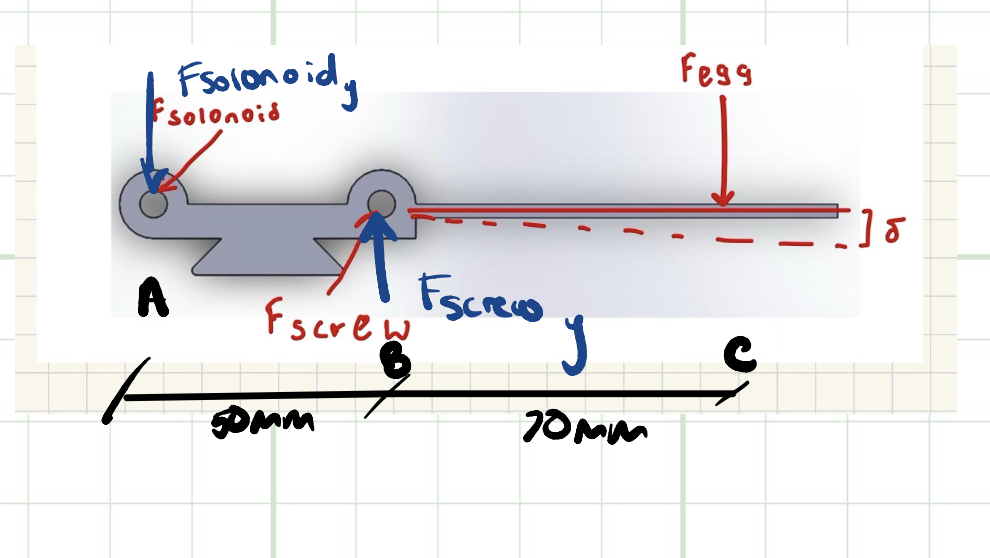 Fsolonoidy
Fsolonoid
Fegg
δ
Fscrewy
Fscrew
A
B
C
50mm
70mm